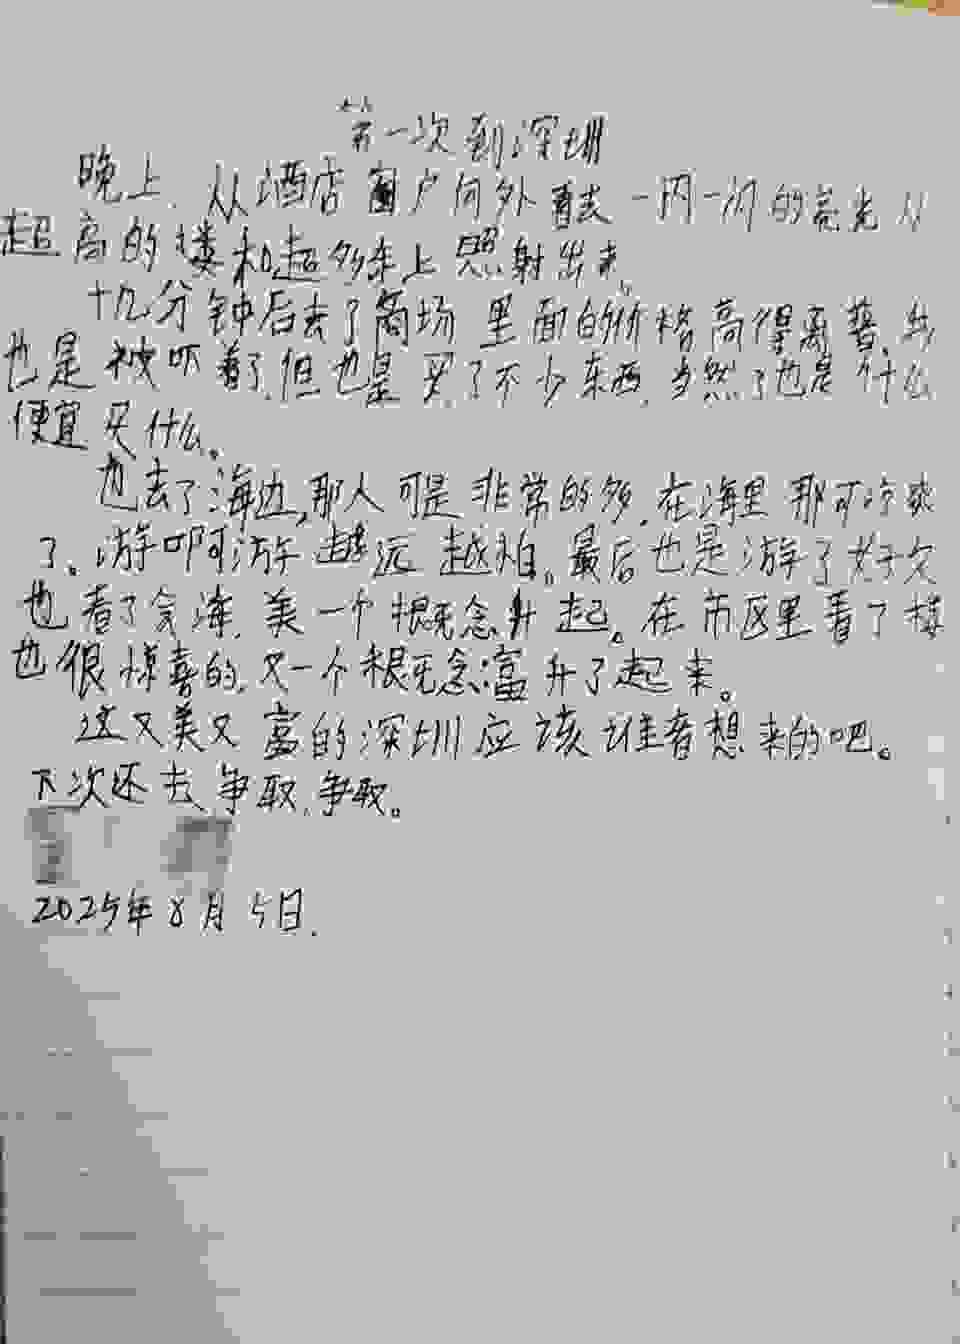 第一次到深圳
晚上,从酒店窗户向外看去一闪一闪的亮光从
超高的楼和超多车上照射出来。
十几分钟后去了商场里面的价格高得离谱,
也是被吓着了,但也是买了不少东西,当然了也是什么
便宜买什么。
也去了海边,那人可是非常的多,在海里那可凉爽
了。游啊游越远越怕。最后也是游了好久
也看了会海,美一个概念升起。在市区里看了楼
也很惊喜的,又一个概念富升了起来。
这又美又富的深圳应该谁者想来的吧。
下次还去争取,争取。
2025年8月5日.